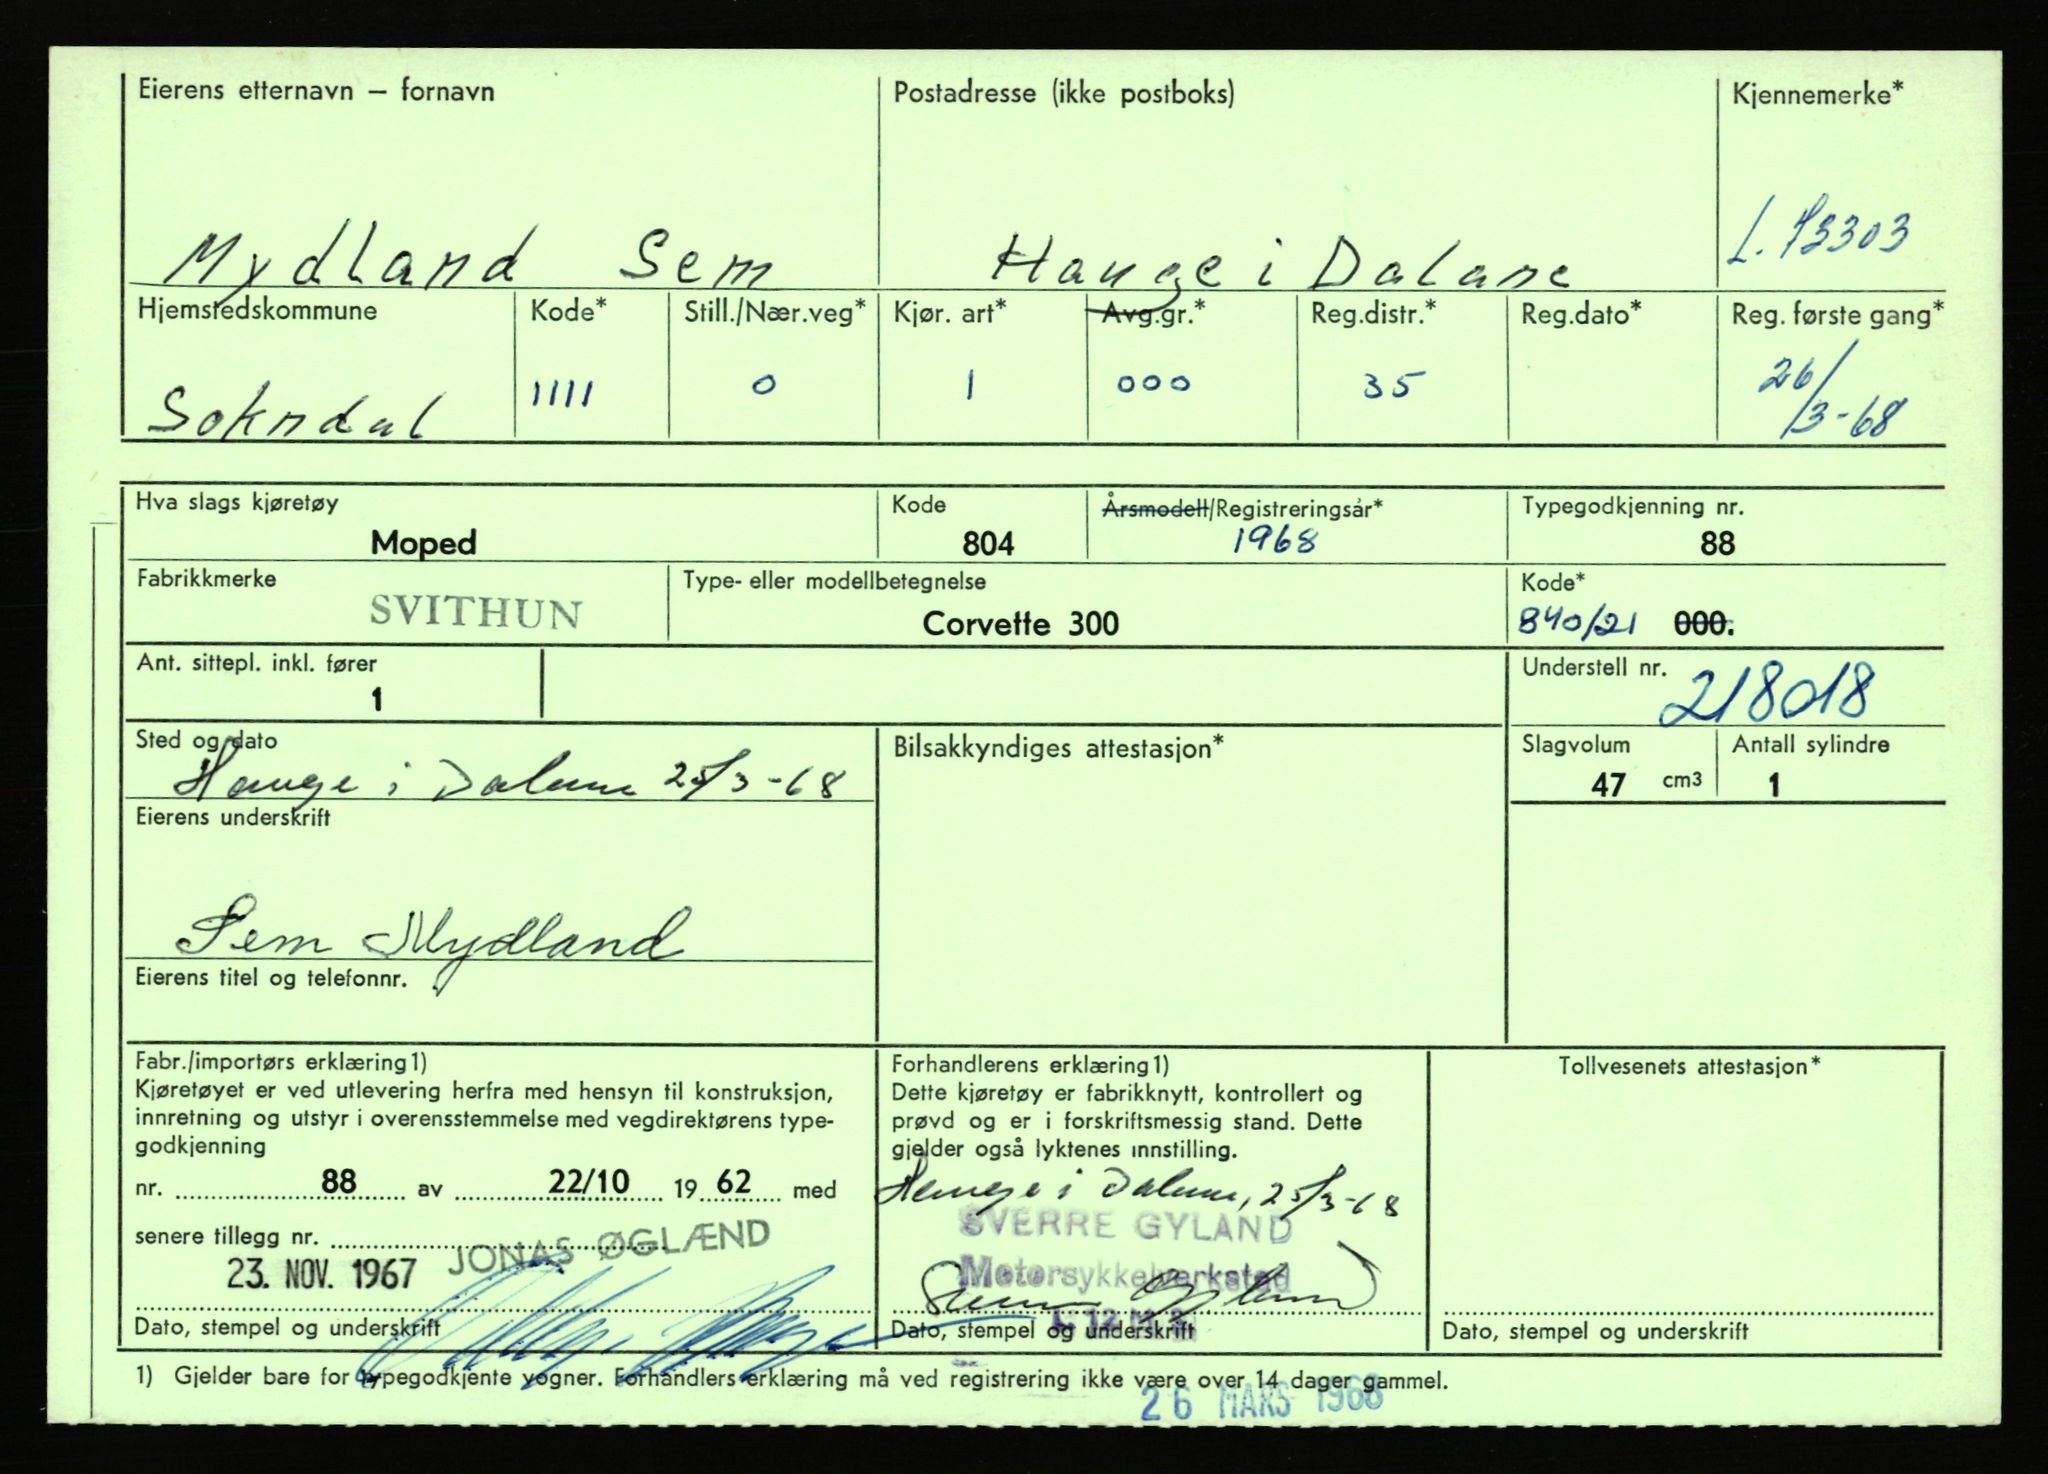 Eierens etternavn – fornavn
Postadresse (ikke postboks)
Kjennemerke*
Mydland Sem
Hauge i Dalane
L. 73303
Hjemstedskommune
Kode*
Still./Nær.veg*
Kjør. art*
Avg.gr.*
Reg.distr.*
Reg.dato*
Reg. første gang*
Sokndal
1111
0
1
000
35
26/3-68
Hva slags kjøretøy
Kode
Årsmodell/Registreringsår*
Typegodkjenning nr.
Moped
804
1968
88
Fabrikkmerke
Type- eller modellbetegnelse
Kode*
SVITHUN
Corvette 300
840/21 000.
Ant. sittepl. inkl. fører
Understell nr.
1
218018
Sted og dato
Bilsakkyndiges attestasjon*
Slagvolum
Antall sylindre
Hauge i Dalane 25/3-68
47 cm3
1
Eierens underskrift
Sem Mydland
Eierens titel og telefonnr.
Fabr./importørs erklæring1)
Kjøretøyet er ved utlevering herfra med hensyn til konstruksjon,
innretning og utstyr i overensstemmelse med vegdirektørens type-
godkjenning
nr. 88 av 22/10 19 62 med
senere tillegg nr.
JONAS ØGLÆND
23. NOV. 1967
Dato, stempel og underskrift
Forhandlerens erklæring1)
Dette kjøretøy er fabrikknytt, kontrollert og
prøvd og er i forskriftsmessig stand. Dette
gjelder også lyktenes innstilling.
Hauge i Dalane, 25/3-68
SVERRE GYLAND
Motorsykkelverksted
Sverre Gyland
Dato, stempel og underskrift
Tollvesenets attestasjon*
Dato, stempel og underskrift
1) Gjelder bare for typegodkjente vogner. Forhandlers erklæring må ved registrering ikke være over 14 dager gammel.
26 MARS 1968